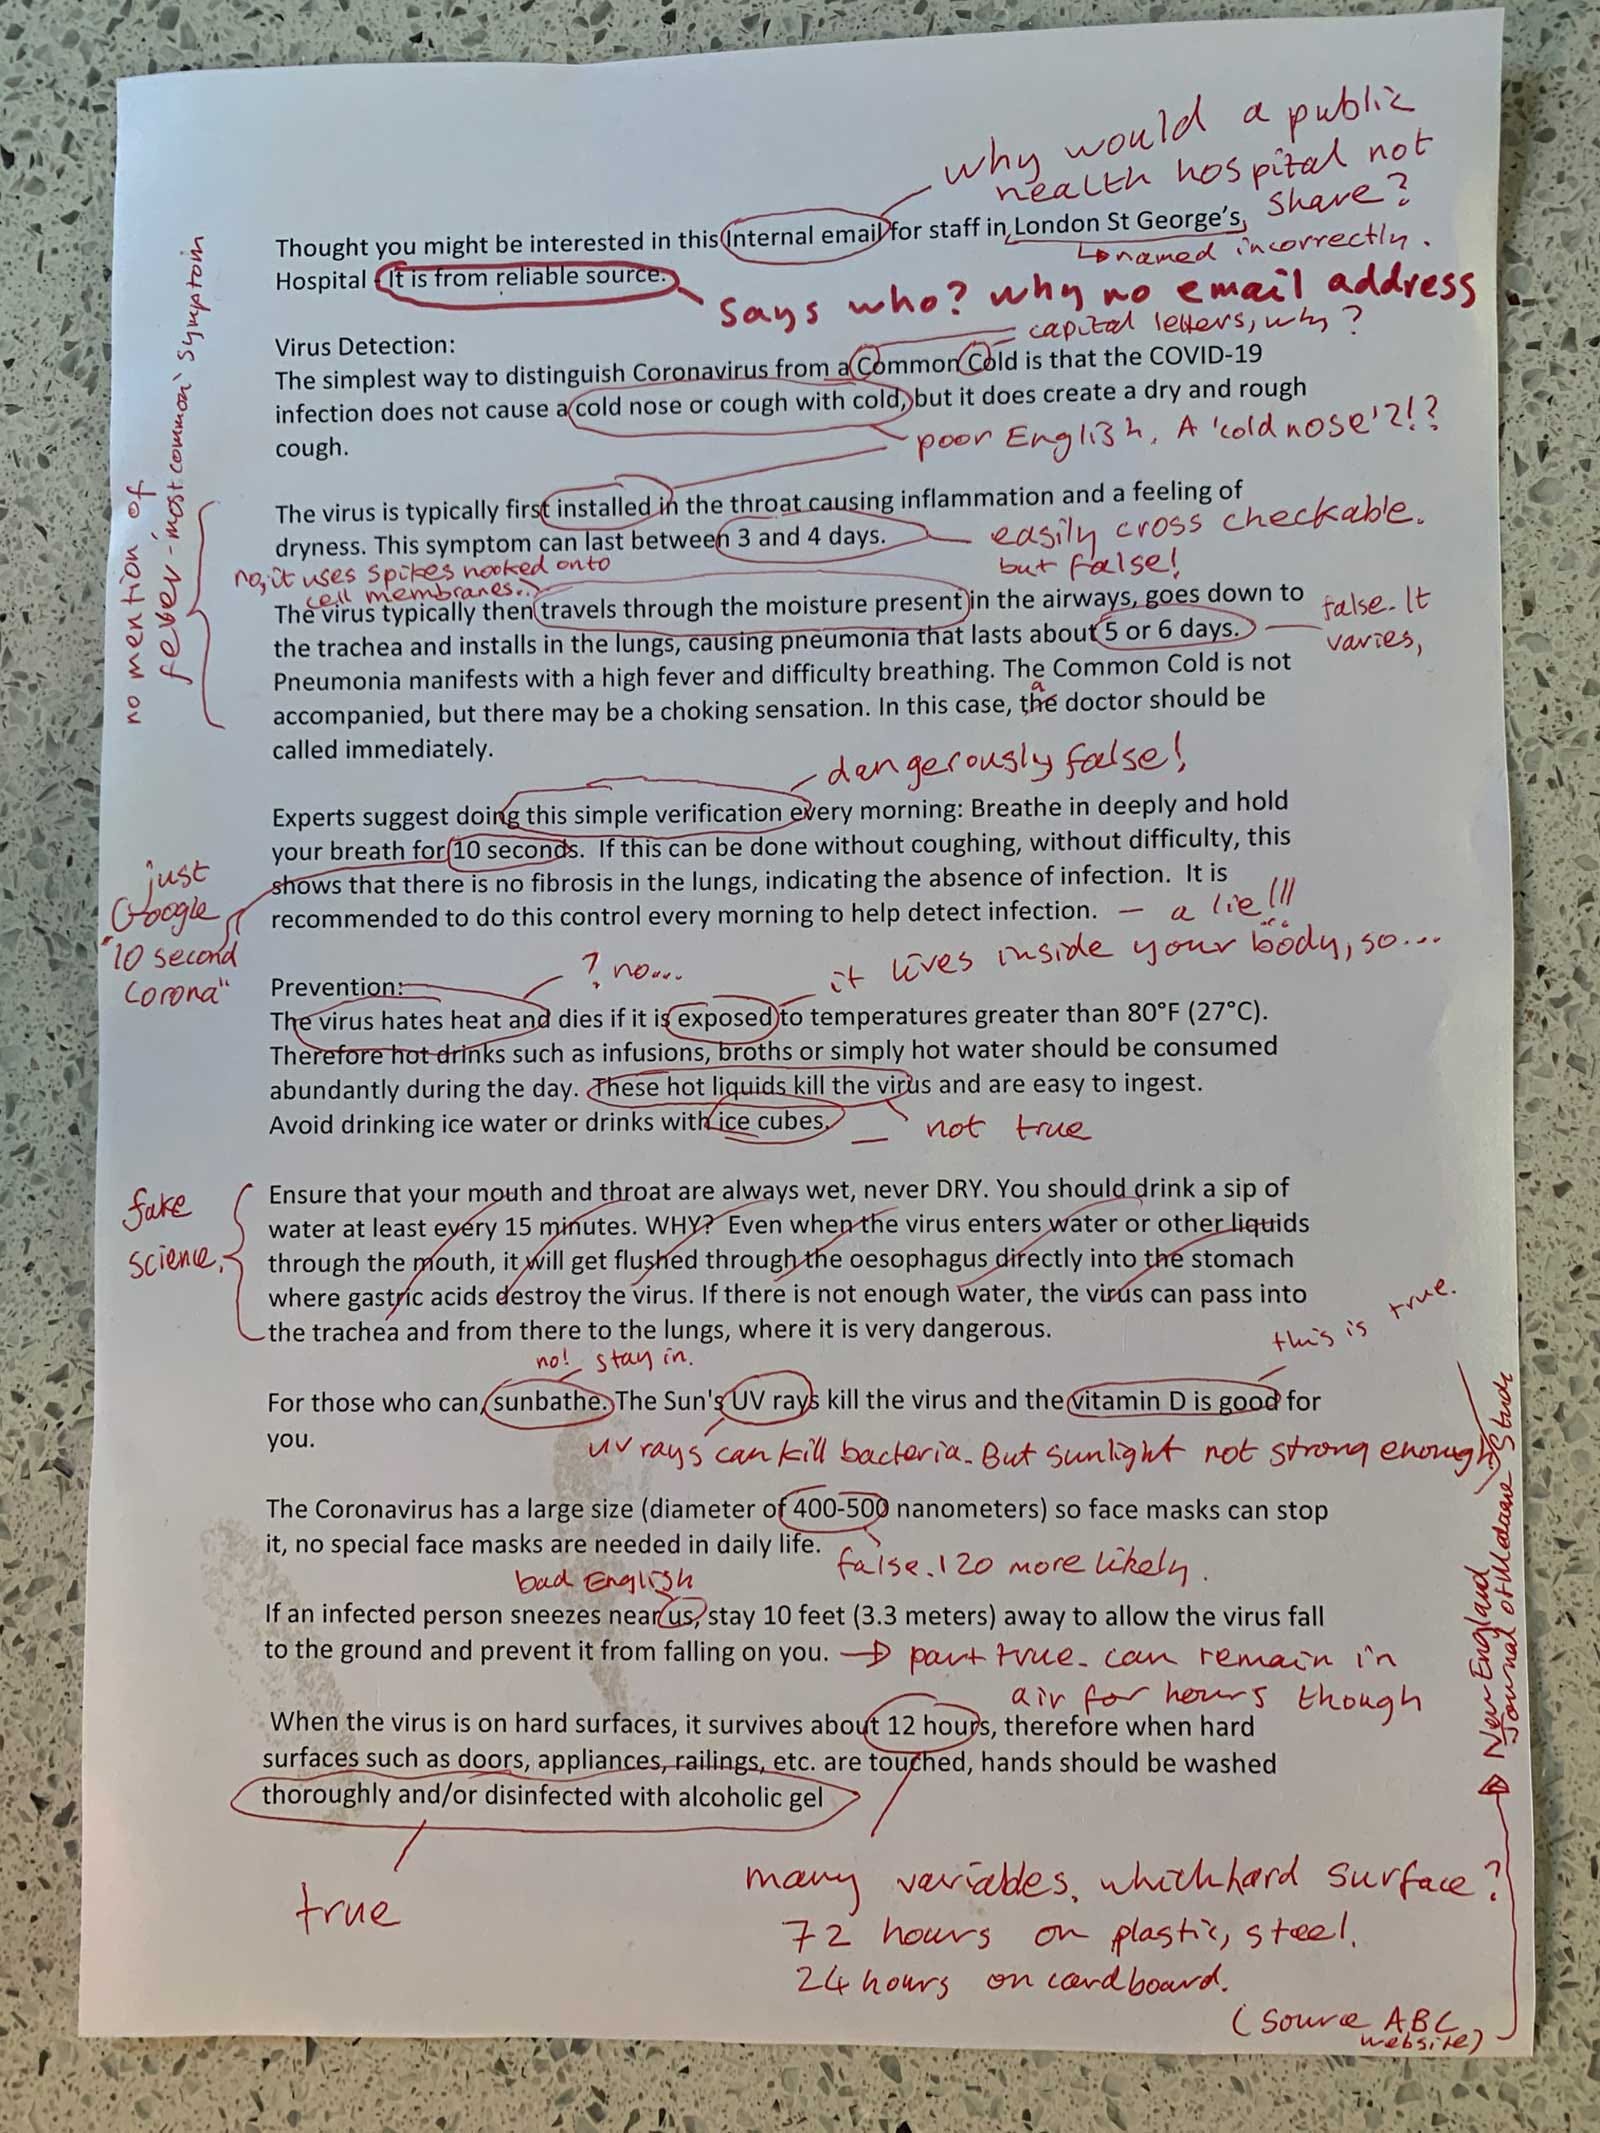 why would a public
health hospital not
share?
Thought you might be interested in this Internal email for staff in London St George's,
↳ named incorrectly.
Hospital It is from reliable source.
says who? why no email address
capital letters, why?
Virus Detection:
The simplest way to distinguish Coronavirus from a Common Cold is that the COVID-19
infection does not cause a cold nose or cough with cold, but it does create a dry and rough
cough.
poor English. A 'cold nose'?!?
no mention of
fever - 'most common' symptom
The virus is typically first installed in the throat causing inflammation and a feeling of
dryness. This symptom can last between 3 and 4 days.
easily cross checkable.
but false!
no, it uses spikes hooked onto
cell membranes..
The virus typically then travels through the moisture present in the airways, goes down to
the trachea and installs in the lungs, causing pneumonia that lasts about 5 or 6 days.
false. It
varies,
Pneumonia manifests with a high fever and difficulty breathing. The Common Cold is not
a
accompanied, but there may be a choking sensation. In this case, the doctor should be
called immediately.
dangerously false!
Experts suggest doing this simple verification every morning: Breathe in deeply and hold
your breath for 10 seconds. If this can be done without coughing, without difficulty, this
shows that there is no fibrosis in the lungs, indicating the absence of infection. It is
recommended to do this control every morning to help detect infection. — a lie!!!
just
Google
"10 second
corona"
? no...
it lives inside your body, so...
Prevention:
The virus hates heat and dies if it is exposed to temperatures greater than 80°F (27°C).
Therefore hot drinks such as infusions, broths or simply hot water should be consumed
abundantly during the day. These hot liquids kill the virus and are easy to ingest.
Avoid drinking ice water or drinks with ice cubes.
not true
fake
science,
Ensure that your mouth and throat are always wet, never DRY. You should drink a sip of
water at least every 15 minutes. WHY? Even when the virus enters water or other liquids
through the mouth, it will get flushed through the oesophagus directly into the stomach
where gastric acids destroy the virus. If there is not enough water, the virus can pass into
the trachea and from there to the lungs, where it is very dangerous.
this is true.
no! stay in.
For those who can, sunbathe. The Sun's UV rays kill the virus and the vitamin D is good for
you.
UV rays can kill bacteria. But sunlight not strong enough
The Coronavirus has a large size (diameter of 400-500 nanometers) so face masks can stop
it, no special face masks are needed in daily life.
false. 120 more likely.
bad English
If an infected person sneezes near us, stay 10 feet (3.3 meters) away to allow the virus fall
to the ground and prevent it from falling on you. → part true. can remain in
air for hours though
When the virus is on hard surfaces, it survives about 12 hours, therefore when hard
surfaces such as doors, appliances, railings, etc. are touched, hands should be washed
thoroughly and/or disinfected with alcoholic gel
true
many variables. which hard surface?
72 hours on plastic, steel.
24 hours on cardboard.
(source ABC
website)
New England
Journal of Medicine Study